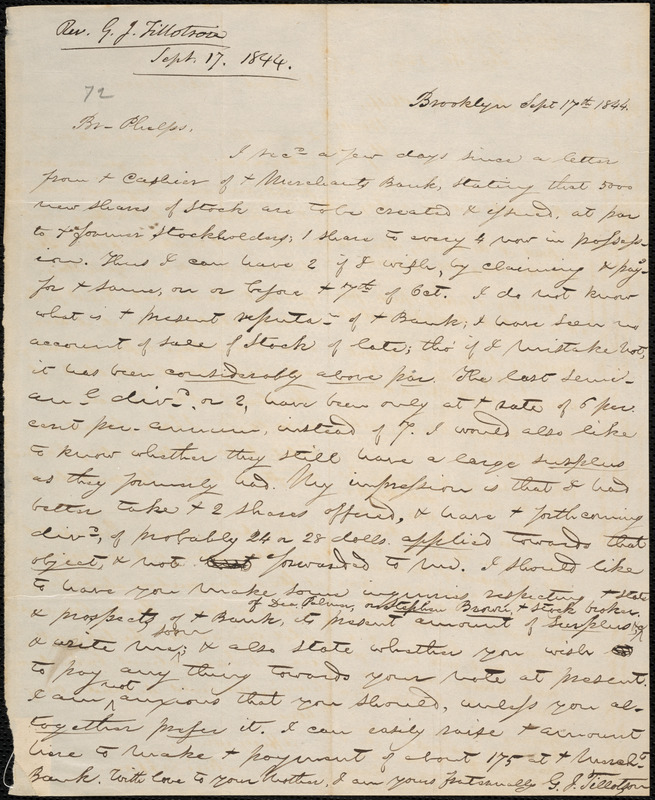 Rev. G. J. Tillotson
Sept. 17. 1844.
72
Brooklyn Sept 17th 1844.
Br- Phelps,
I recd a few days since a letter
from + Cashier of + Merchants Bank, stating that 5000
new shares of Stock are to be created & issued, at par
to + former Stockholders; 1 share to every 4 now in possess-
ion. Thus I can have 2 if I wish, by claiming & payg
for + same, on or before + 7th of Oct. I do not know
what is + present reputan of + Bank; I have seen no
account of sale of Stock of late; tho' if I mistake not,
it has been considerably above par. The last semi-
anl divd, or 2, have been only at + rate of 6 per
cent per-annum, instead of 7. I would also like
to know whether they still have a large surplus
as they formerly had. My impression is that I had
better take + 2 shares offered, & have + forthcoming
divd, of probably 24 or 28 dolls. applied towards that
object, & not forwarded to me. I should like
to have you make some inquiries respecting + state
of Dea. Palmer, or Stephen Brown, + Stock broker,
& prospects of + Bank, its present amount of Surplus &c
soon
& write me; & also state whether you wish
to pay any thing towards your note at present.
not
I am anxious that you should, unless you al-
together prefer it. I can easily raise + amount
here to make + payment of about 175 at + Merchts
Bank. With love to your Mother, I am yours fraternally G. J. Tillotson